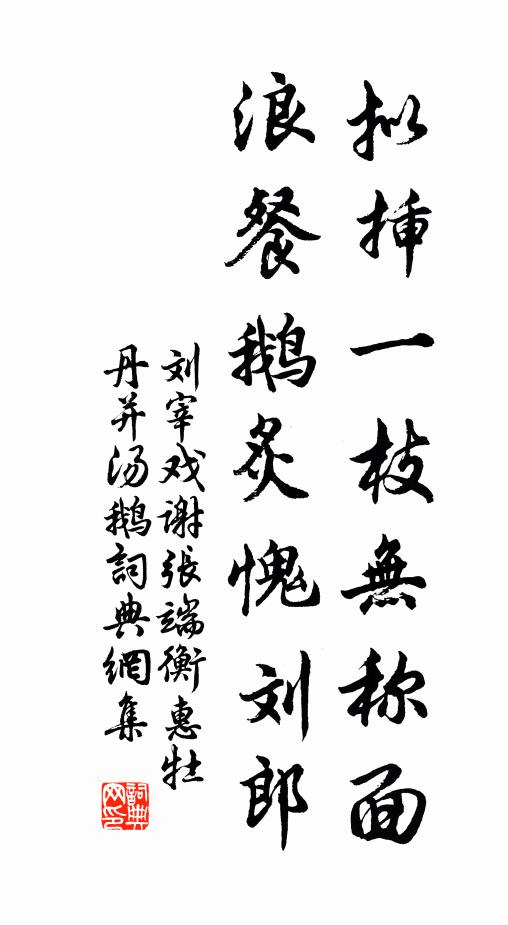 拟揷一枝無称面
浪餐鹅炙愧刘郎
刘宰戏谢张端衡惠牡
丹并汤鹅詞典網集
詞典网印